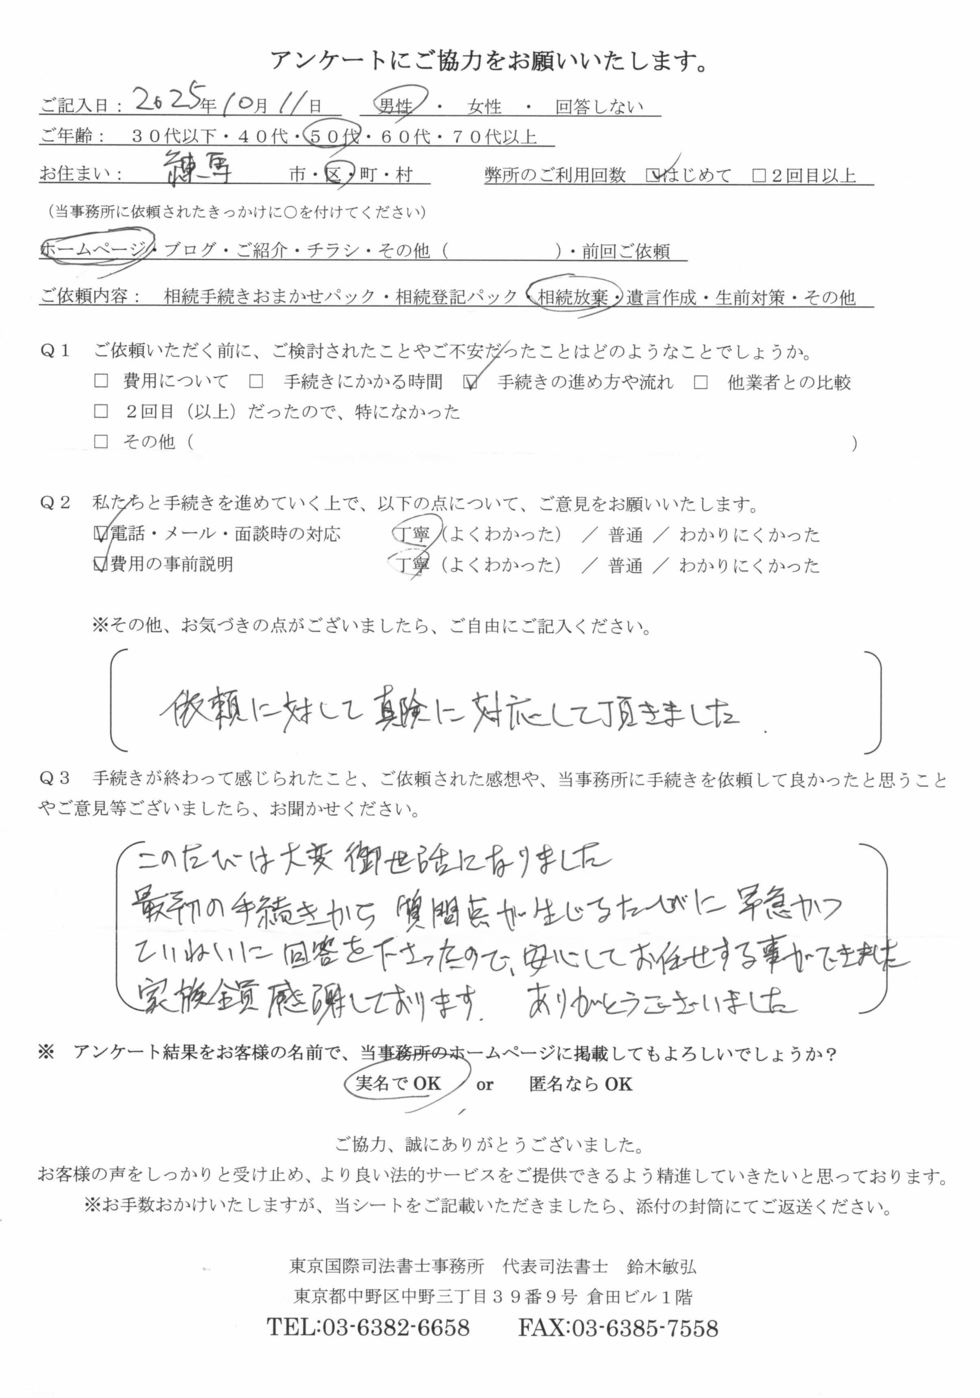 アンケートにご協力をお願いいたします。
ご記入日： 2025年10月11日　男性 ・ 女性 ・ 回答しない
ご年齢： 30代以下・40代・50代・60代・70代以上
お住まい： 練馬　市・区・町・村　弊所のご利用回数 ☑はじめて □2回目以上
（当事務所に依頼されたきっかけに○を付けてください）
ホームページ・ブログ・ご紹介・チラシ・その他（　　　）・前回ご依頼
ご依頼内容： 相続手続きおまかせパック・相続登記パック・相続放棄・遺言作成・生前対策・その他
Q1 ご依頼いただく前に、ご検討されたことやご不安だったことはどのようなことでしょうか。
□ 費用について □ 手続きにかかる時間 ☑ 手続きの進め方や流れ □ 他業者との比較
□ 2回目（以上）だったので、特になかった
□ その他（　　　）
Q2 私たちと手続きを進めていく上で、以下の点について、ご意見をお願いいたします。
☑電話・メール・面談時の対応　丁寧（よくわかった） ／ 普通 ／ わかりにくかった
☑費用の事前説明　丁寧（よくわかった） ／ 普通 ／ わかりにくかった
※その他、お気づきの点がございましたら、ご自由にご記入ください。
依頼に対して真険に対応して頂きました.
Q3 手続きが終わって感じられたこと、ご依頼された感想や、当事務所に手続きを依頼して良かったと思うこと
やご意見等ございましたら、お聞かせください。
このたびは大変御世話になりました
最初の手続きから質問点が生じるたびに早急かつ
ていねいに回答を下さったので、安心してお任せする事ができました
家族全員感謝しております. ありがとうございました
※ アンケート結果をお客様の名前で、当事務所のホームページに掲載してもよろしいでしょうか？
実名でOK or 匿名ならOK
ご協力、誠にありがとうございました。
お客様の声をしっかりと受け止め、より良い法的サービスをご提供できるよう精進していきたいと思っております。
※お手数おかけいたしますが、当シートをご記載いただきましたら、添付の封筒にてご返送ください。
東京国際司法書士事務所 代表司法書士 鈴木敏弘
東京都中野区中野三丁目39番9号 倉田ビル1階
TEL:03-6382-6658 FAX:03-6385-7558